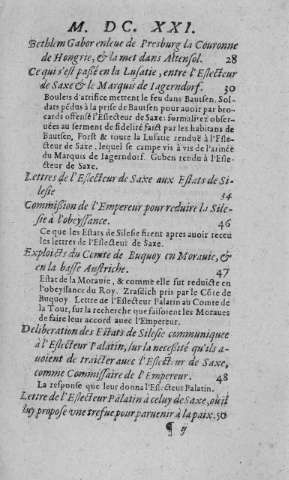 M. DC. XXI.
Bethlem Gabor enleue de Presburg la Couronne
de Hongrie, & la met dans Altensol. 28
Ce qui s'est passé en la Lusatie, entre l'Eslecteur
de Saxe & le Marquis de Iagerndorf. 30
Boulets d'artifice mettent le feu dans Bautsen. Sol-
dats pēdus à la prise de Bautsen pour auoir par bro-
cards offensé l'Eslecteur de Saxe: formalitez obser-
uées au serment de fidelité faict par les habitans de
Bautsen. Forst & toute la Lusatie renduë à l'Esle-
cteur de Saxe, lequel se campe vis à vis de l'armée
du Marquis de Iagerndorf. Guben rendu à l'Esle-
cteur de Saxe.
Lettres de l'Eslecteur de Saxe aux Estats de Si-
lesie 34
Commission de l'Empereur pour reduire la Sile-
sie à l'obeyssance. 46
Ce que les Estats de Silesie firent apres auoir receu
les lettres de l'Eslecteur de Saxe.
Exploicts du Comte de Buquoy en Morauie, &
en la basse Austriche. 47
Estat de la Morauie, & comme elle fut reduicte en
l'obeyssance du Roy. Zraslich pris par le Cōte de
Buquoy Lettre de l'Eslecteur Palatin au Comte de
la Tour, sur la recherche que faisoient les Moraues
de faire leur accord auec l'Empereur.
Deliberation des Estats de Silesie communiquee
à l'Eslecteur Palatin, sur la necessité qu'ils a-
uoient de traicter auec l'Eslecteur de Saxe,
comme Commissaire de l'Empereur. 48
La response que leur donna l'Eslecteur Palatin.
Lettre de l'Eslecteur Palatin à celuy de Saxe, où il
luy propose vne trefue pour paruenir à la paix. 50
¶ ij